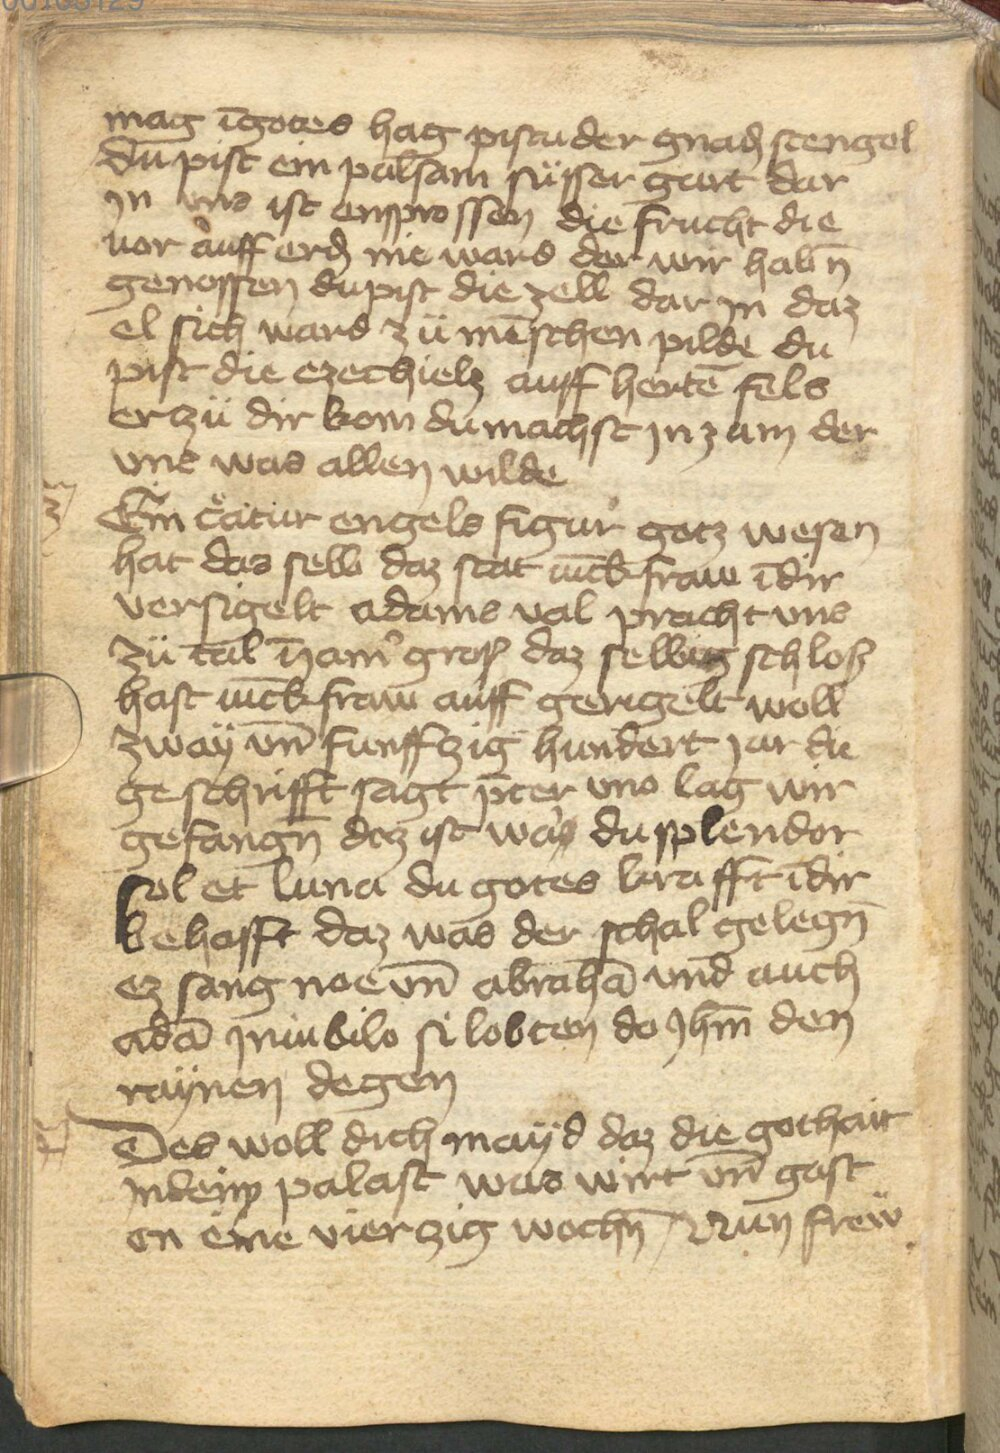 00103129
mag īgotes hag pistu der gnadn stengel
du pist ein palsam süsser gart dar
jn uns ist ensprossen die frucht die
uor auff erdn nie ward der wir habn̄
genossen du pist die zell dar jn daz
el sich ward zü mēschen pilde du
pist die ezechielz auff hertē fels
er zü dir kom du machst jn zam der
vnс was allen wilde
Ein c̄atur engels figur gotz wesen
hat das selb daz stat iūckfraw īdir
versigelt adams val pracht vns
zü tal groß daz selbig schloß
hast iūckfraw auff gerigelt woll
zway vn̄ funffzig hundert jar die
geschrifft sagt pt̄er vns lag wir
gefangn̄ dcz ist war du splendor
sol et luna du gotes krafft īdir
behafft daz was der schal gelegn̄
ez sang noe vn̄ abrahā vnd auch
adā jn iubilo si lobten do Jhm̄ den
raÿnen degen
Des woll dich maÿd daz die gothait
jn deim palast was wirt vn̄ gast
on eine vierczig wochn̄ Nun frew